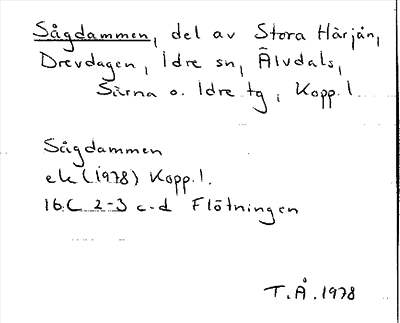 Sågdammen, del av Stora Härjån,
Drevdagen, Idre sn, Älvdals,
Särna o. Idre tg, Kopp. l.
Sågdammen
ek (1978) Kopp. l.
16 C 2-3 c-d Flötningen
T. Å. 1978